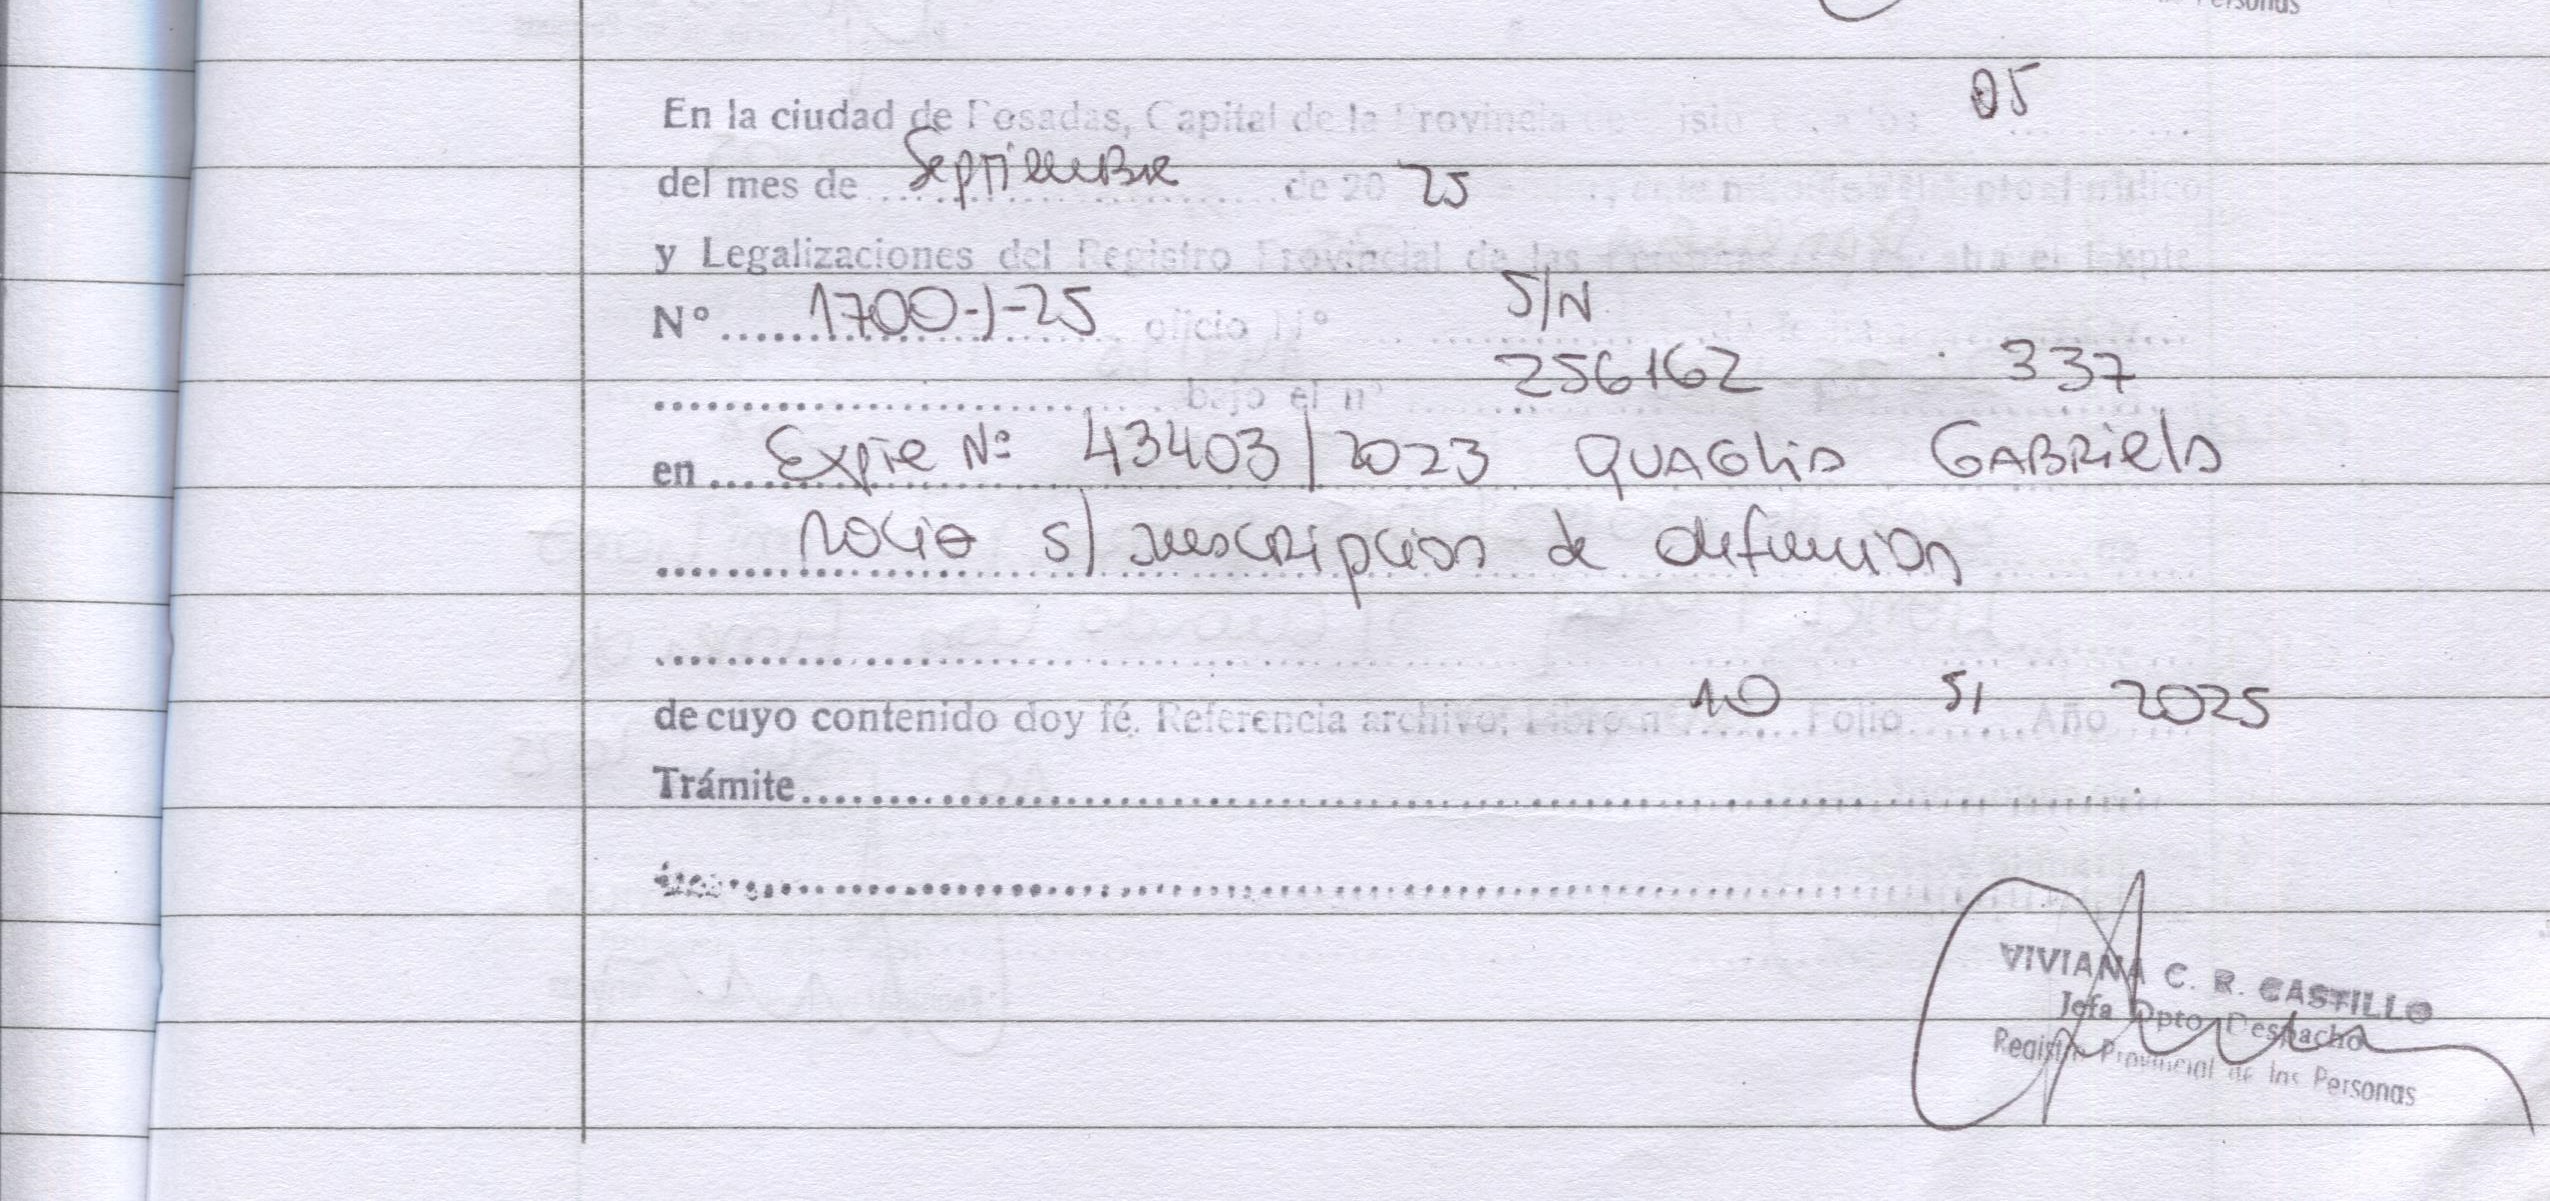 de Personas
05
En la ciudad de Posadas, Capital de la Provincia
del mes de Septiembre de 20 25
y Legalizaciones del Registro Provincial de las Personas el Expte
N° 1700-J-25 oficio N° S/N
bajo el n° 256162 337
en Expte Nº 43403/2023 QUAGLIA GABRIELA
ROCIO s/ inscripcion de defuncion
de cuyo contenido doy fé. Referencia archivo: Libro n° 10 Folio 51 Año 2025
Trámite
VIVIANA C. R. CASTILLO
Jefa Dpto. Despacho
Registro Provincial de las Personas